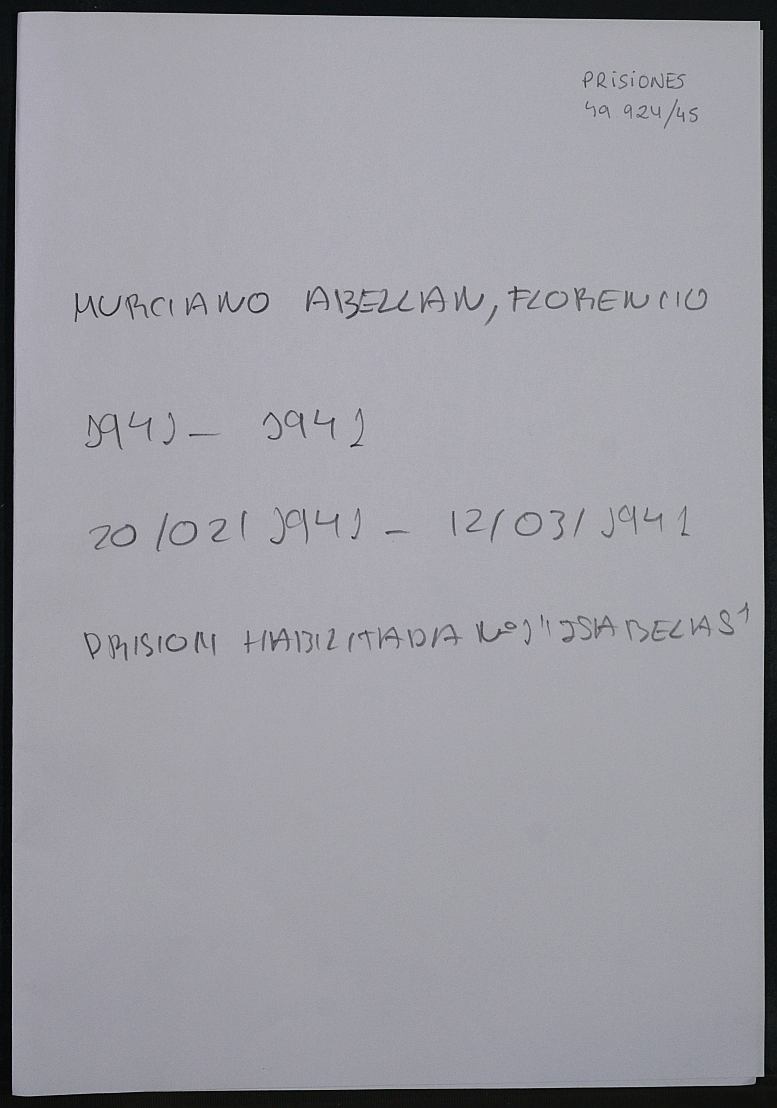 PRISIONES
49 924/45
MURCIANO ABELLAN, FLORENCIO
1941 - 1941
20/02/1941 - 12/03/1941
PRISION HABILITADA Nº 1 "ISABELAS"